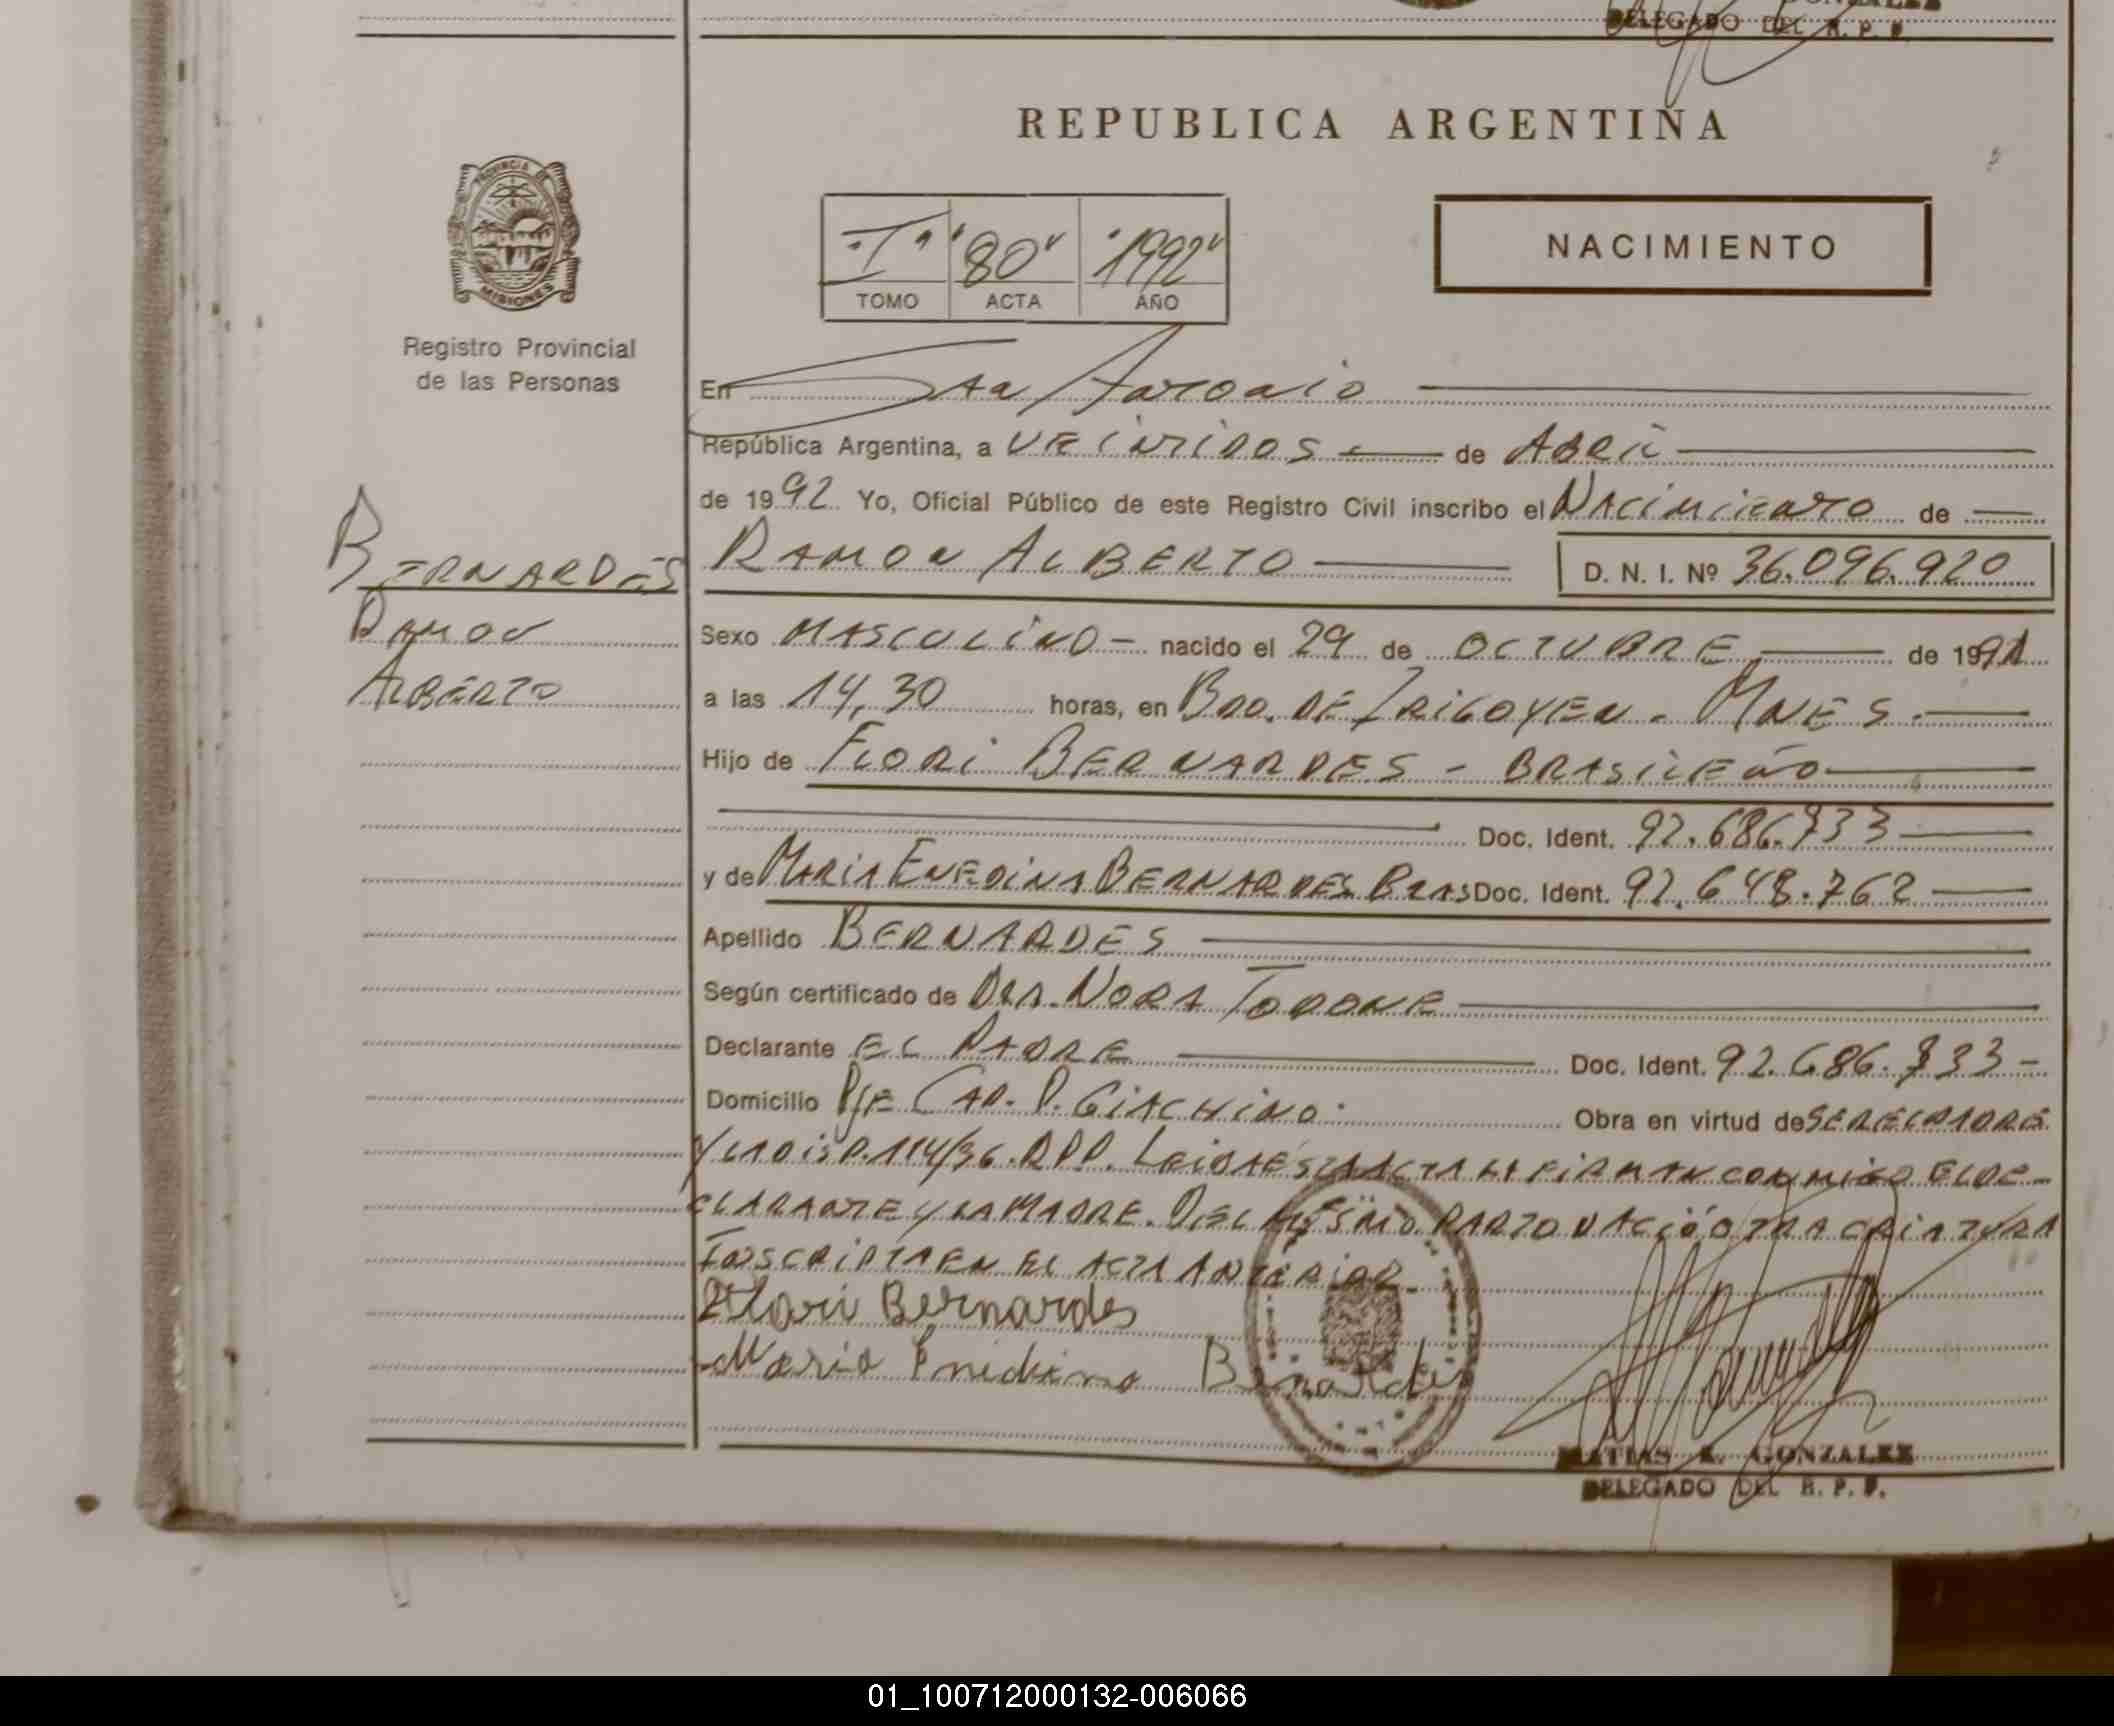 GONZALEZ
DELEGADO DEL R. P. P.
REPUBLICA ARGENTINA
PROVINCIA DE
MISIONES
Registro Provincial
de las Personas
"I" "80" "1992"
TOMO ACTA AÑO
NACIMIENTO
En San Antonio
República Argentina, a VEINTIDOS de ABRIL
de 1992 Yo, Oficial Público de este Registro Civil inscribo el NACIMIENTO de
BERNARDES
RAMON
ALBERTO
RAMON ALBERTO D. N. I. Nº 36.096.920
Sexo MASCULINO - nacido el 29 de OCTUBRE de 1991
a las 14,30 horas, en BDO. DE IRIGOYEN - MNES.
Hijo de FLORI BERNARDES - BRASILEÑO
Doc. Ident. 92.686.733
y de MARIA ENEDINA BERNARDES BRAS Doc. Ident. 92.648.762
Apellido BERNARDES
Según certificado de DRA. NORA
Declarante EL PADRE Doc. Ident. 92.686.733 -
Domicilio PJE CAP. P. GIACHINO. Obra en virtud de
Y LA DISP. 114/86. RPP. LEIDA ESTA ACTA LA FIRMAN CONMIGO EL DE-
CLARANTE Y LA MADRE. DEL MISMO PARTO NACIÓ OTRA CRIATURA
INSCRIPTA EN EL ACTA ANTERIOR
Flori Bernardes
Maria Enidina Bernardes
MATIAS R. GONZALEZ
DELEGADO DEL R. P. P.
01_100712000132-006066